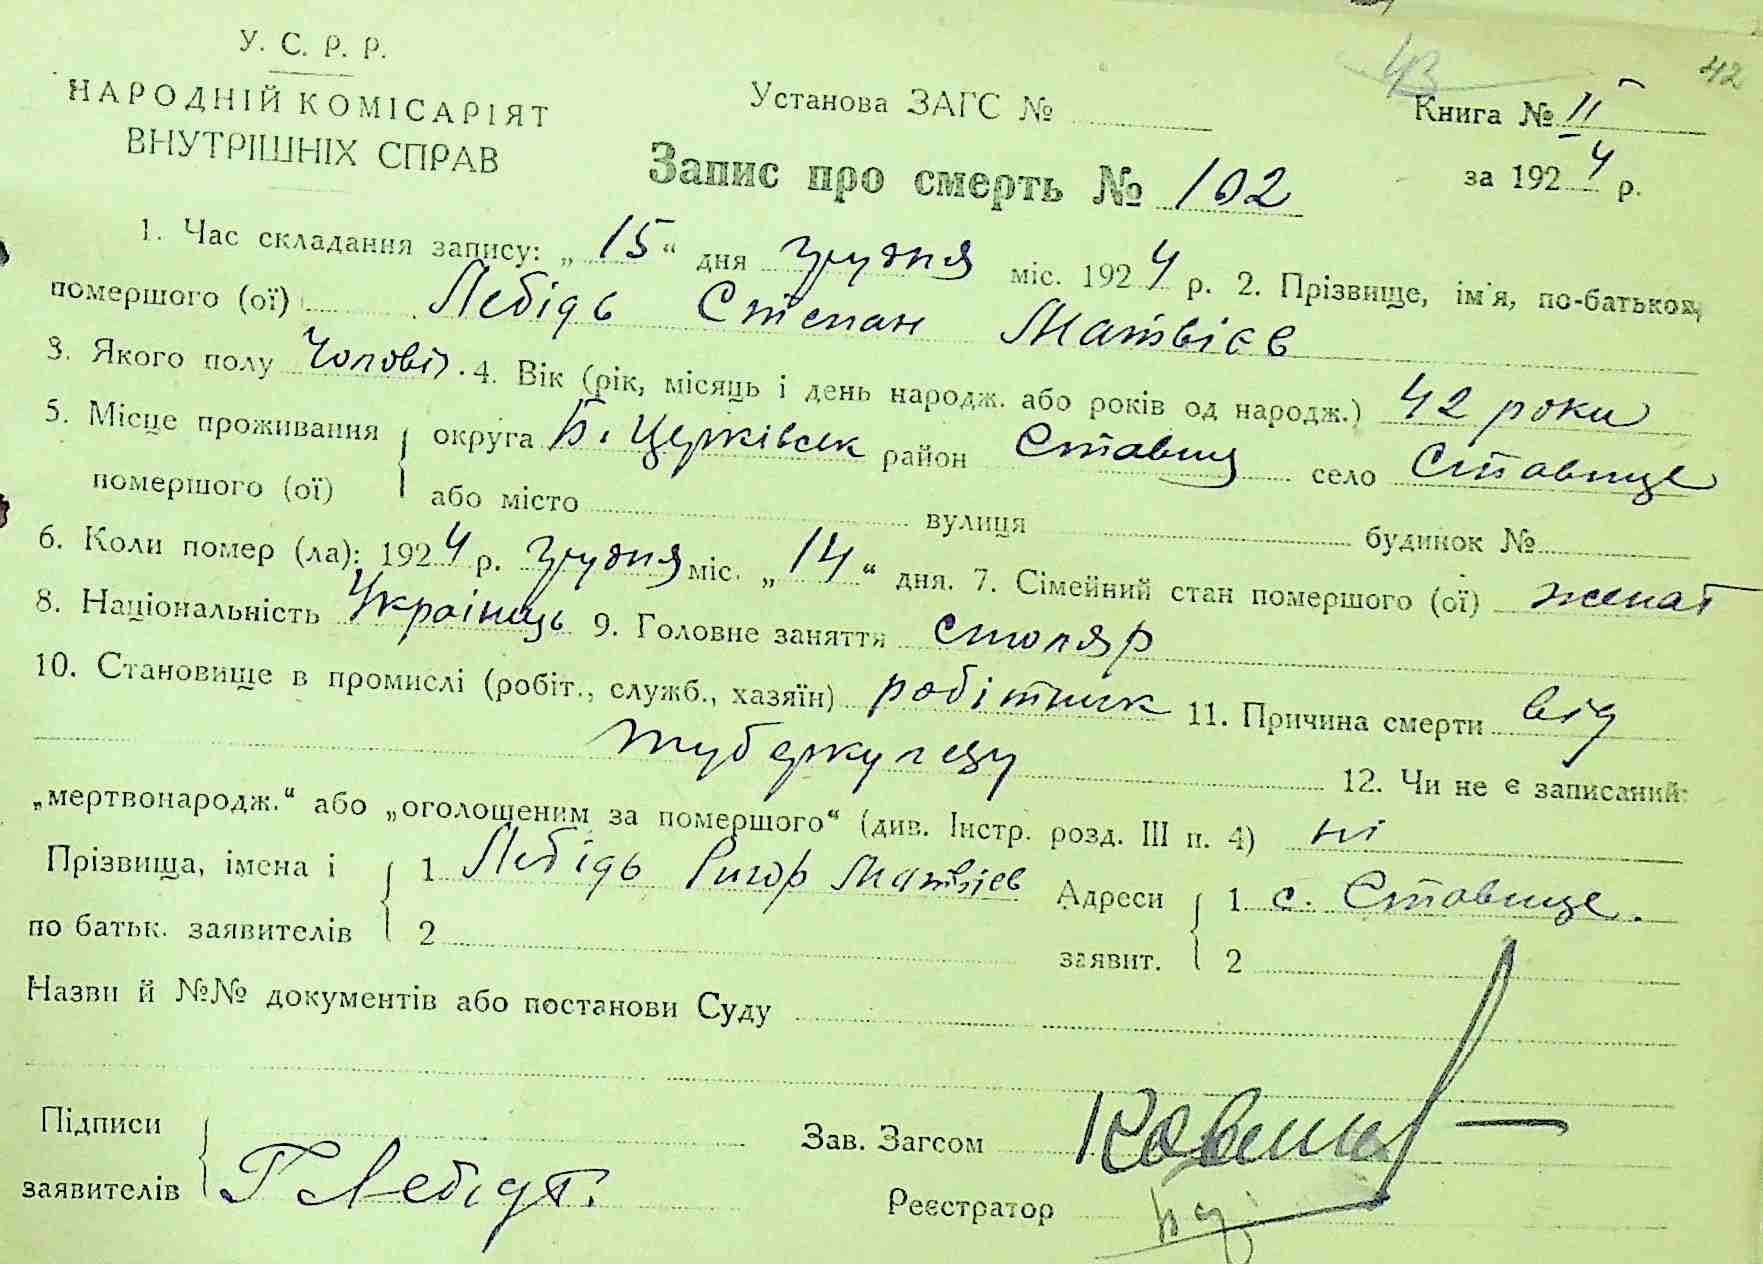 У. С. Р. Р.
НАРОДНІЙ КОМІСАРІЯТ
ВНУТРІШНІХ СПРАВ
Установа ЗАГС №
43
42
Книга № II
за 1924 р.
Запис про смерть № 102
1. Час складання запису: „15“ дня грудня міс. 1924 р. 2. Прізвище, ім'я, по-батькові
помершого (ої) Лебідь Степан Матвієв
3. Якого полу Чолові. 4. Вік (рік, місяць і день народж. або років од народж.) 42 роки
5. Місце проживання помершого (ої) округа Б. Церківськ район Ставищ село Ставище
або місто вулиця будинок №
6. Коли помер (ла): 1924 р. грудня міс. „14“ дня. 7. Сімейний стан помершого (ої) женат
8. Національність Українець 9. Головне заняття столяр
10. Становище в промислі (робіт., служб., хазяїн) робітник 11. Причина смерти від
туберкулезу 12. Чи не є записаний
„мертвонародж.“ або „оголошеним за помершого“ (див. Інстр. розд. III п. 4) ні
Прізвища, імена і по батьк. заявителів 1 Лебідь Ригор Матвієв
2
Адреси заявит. 1 с. Ставище.
2
Назви й №№ документів або постанови Суду
Підписи заявителів Г Лебідь.
Зав. Загсом
Реєстратор